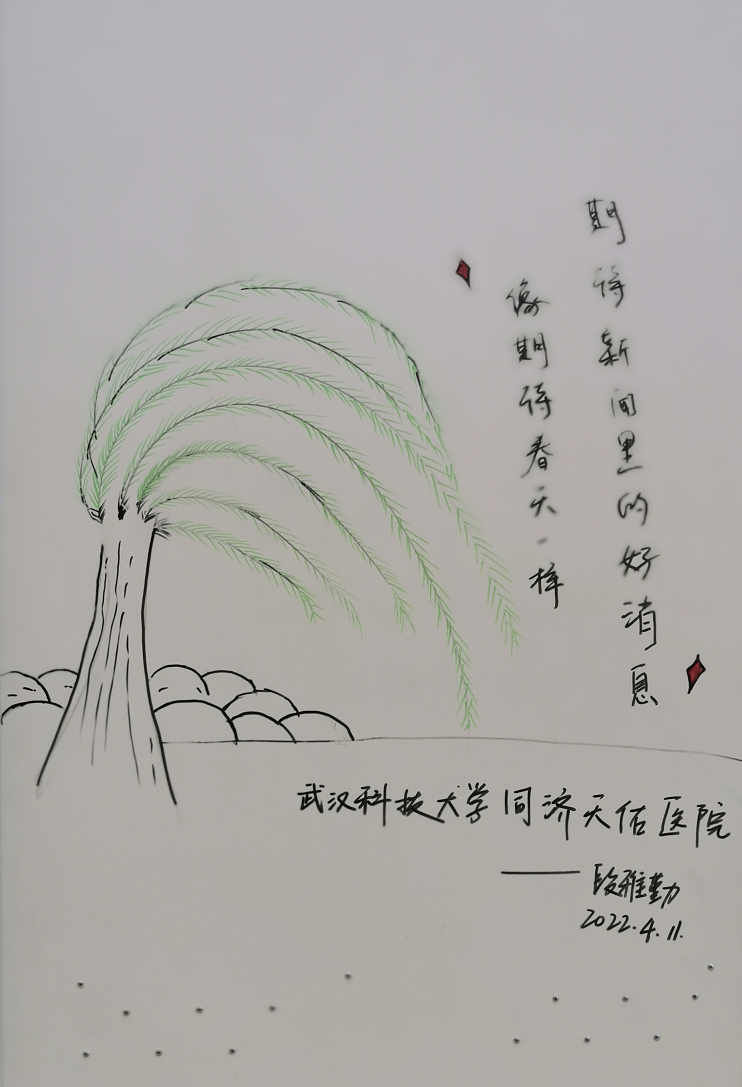 期待新闻里的好消息
像期待春天一样
武汉科技大学同济天佑医院
——段雅勤
2022.4.11.